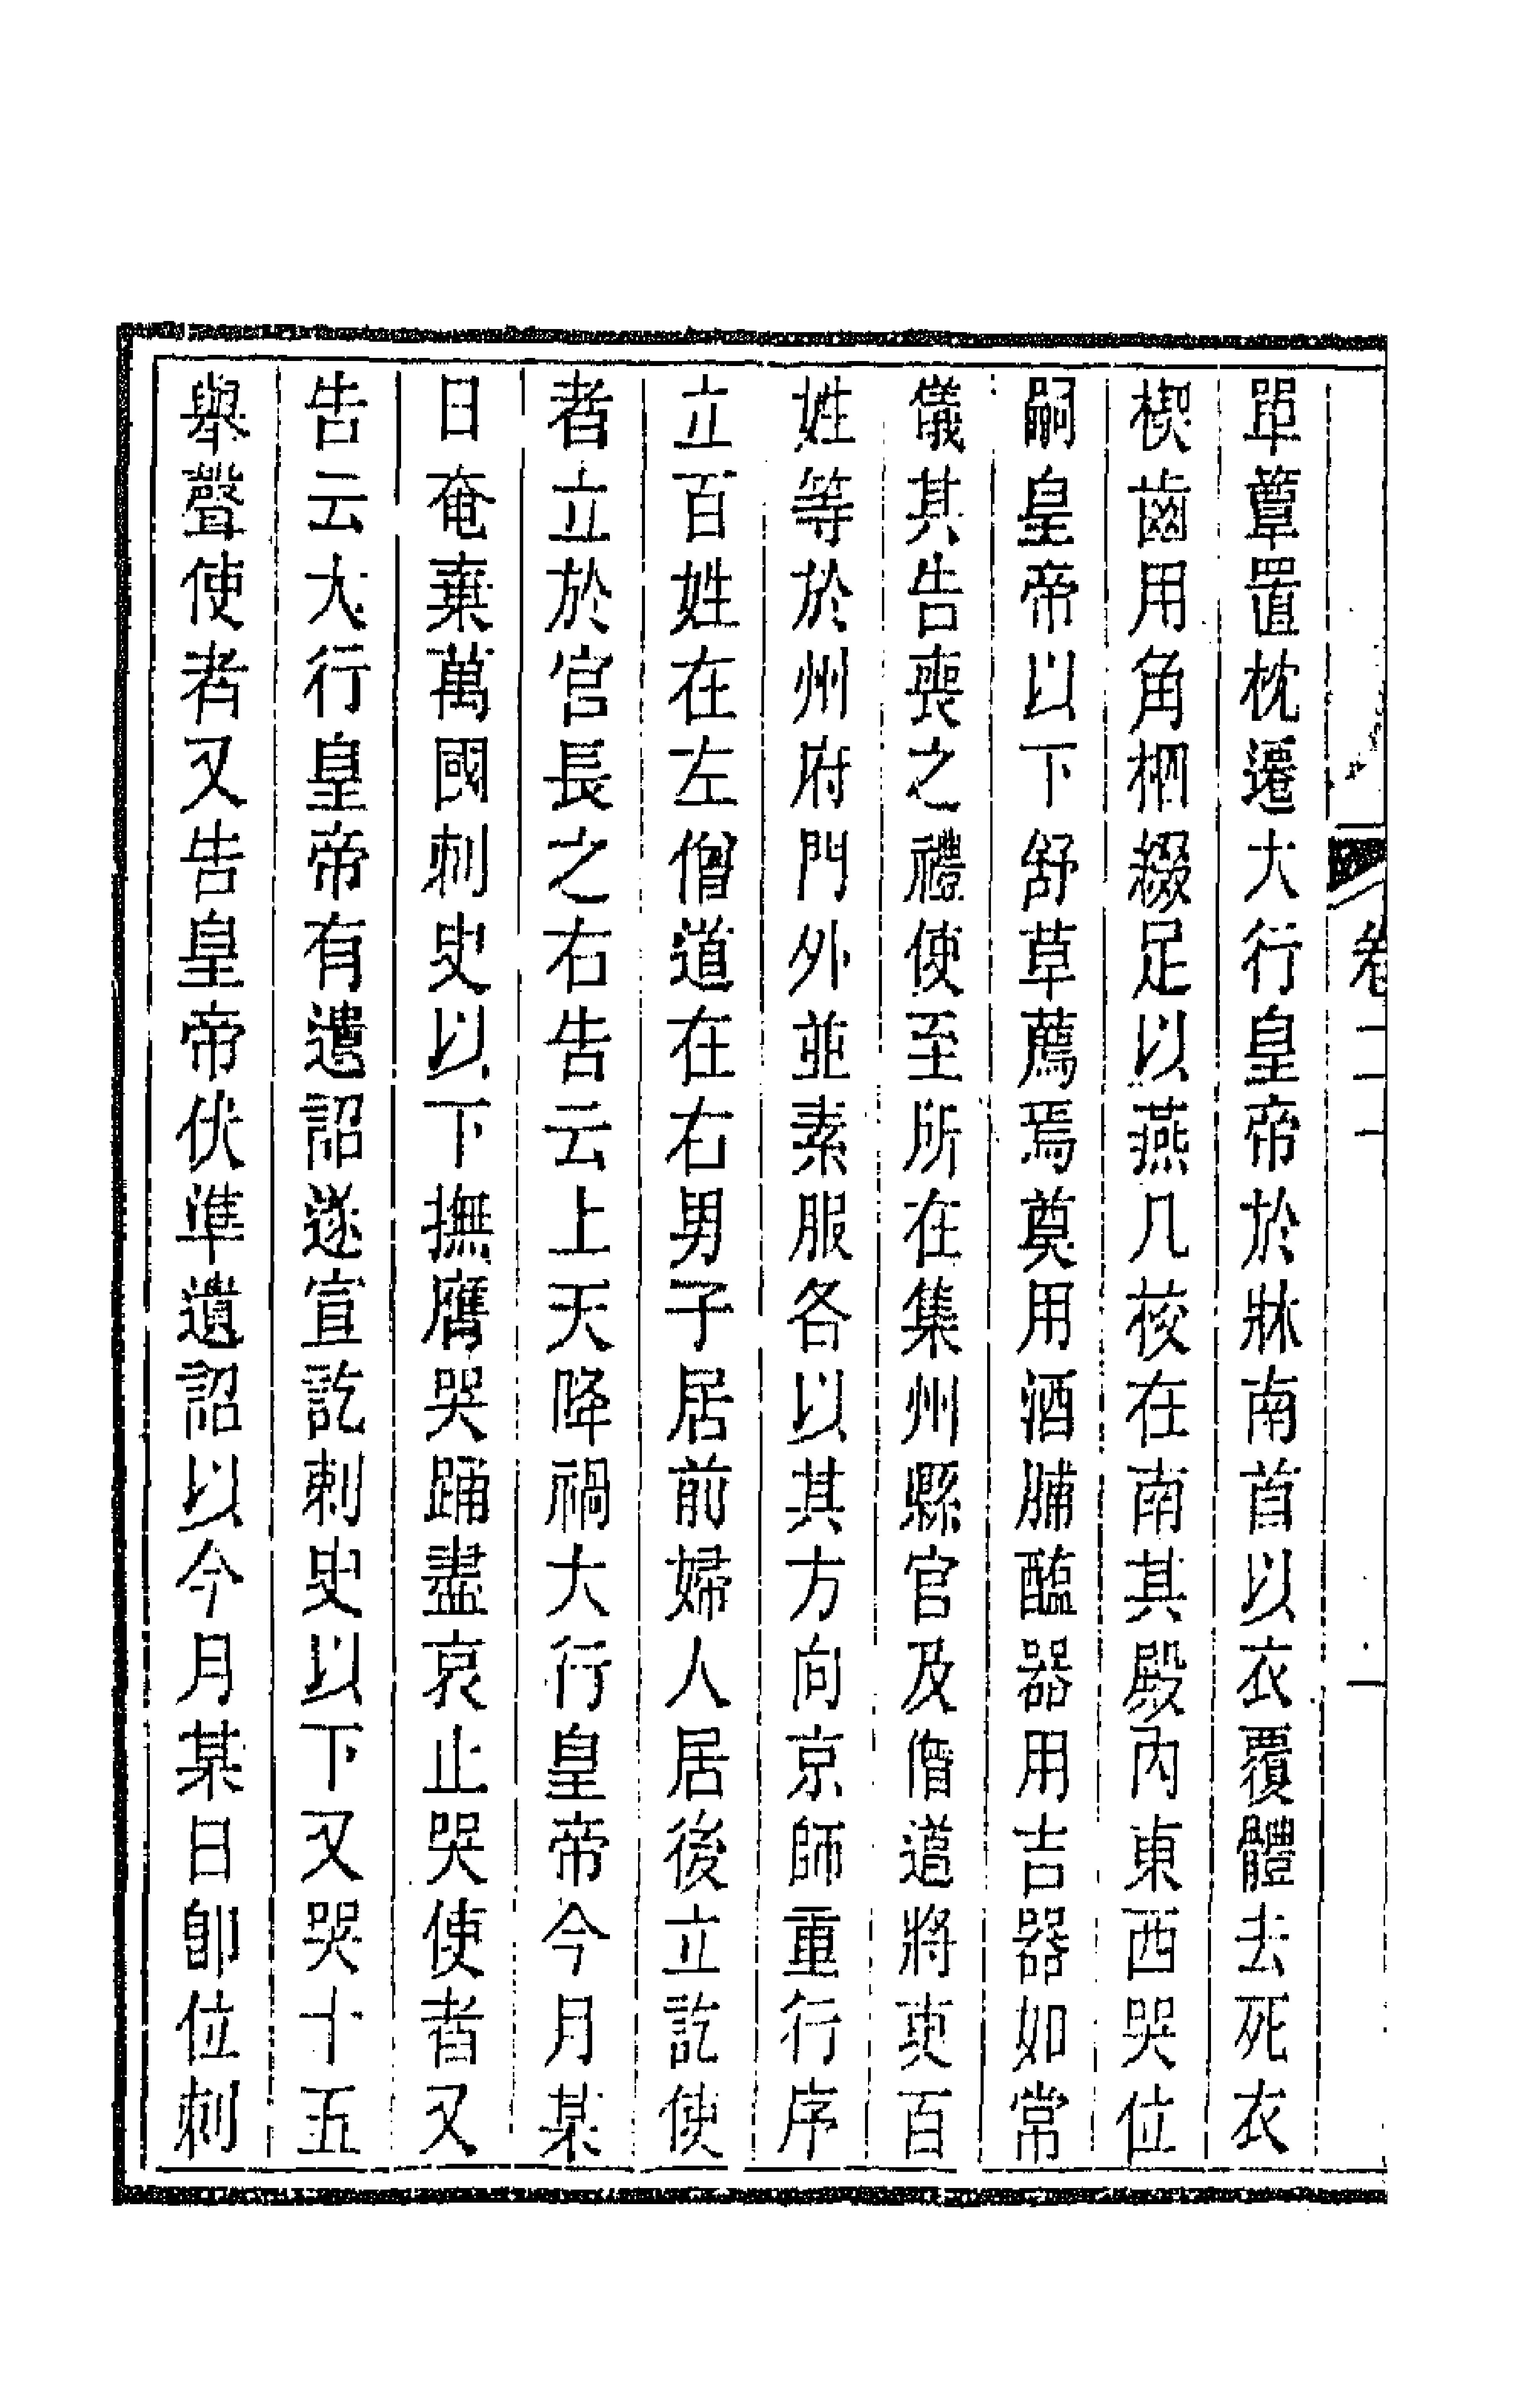 卷二十一
單簟置枕遷大行皇帝於牀南首以衣覆體去死衣
楔齒用角柶綴足以燕几校在南其殿內東西哭位
嗣皇帝以下舒草薦焉奠用酒脯醢器用吉器如常
儀其告喪之禮使至所在集州縣官及僧道將吏百
姓等於州府門外並素服各以其方向京師重行序
立百姓在左僧道在右男子居前婦人居後立訖使
者立於官長之右告云上天降禍大行皇帝今月某
日奄棄萬國刺史以下撫膺哭踊盡哀止哭使者又
告云大行皇帝有遺詔遂宣訖刺史以下又哭十五
舉聲使者又告皇帝伏準遺詔以今月某日卽位刺